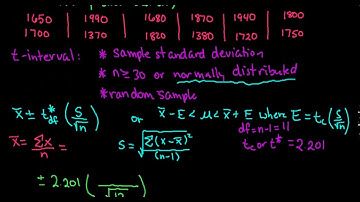 1650 1990 1680 1870 1940 1800
1700 1370 1820 1380 1720 1750
t-interval: * sample standard deviation
* n≥30 or normally distributed
* random sample
x̄ ± t*df (S/√n) or x̄-E < μ < x̄+E where E = tc (S/√n)
df = n-1 = 11
tc or t* = 2.201
x̄ = Σx/n = S = √(Σ(x-x̄)²/(n-1))
± 2.201 ( /√12 )